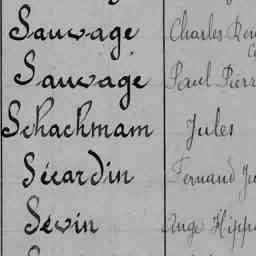 Sauvage Charles
Sauvage Paul Pierr
Schachmam Jules
Sicardin Fernand
Sevin Ange Hipp